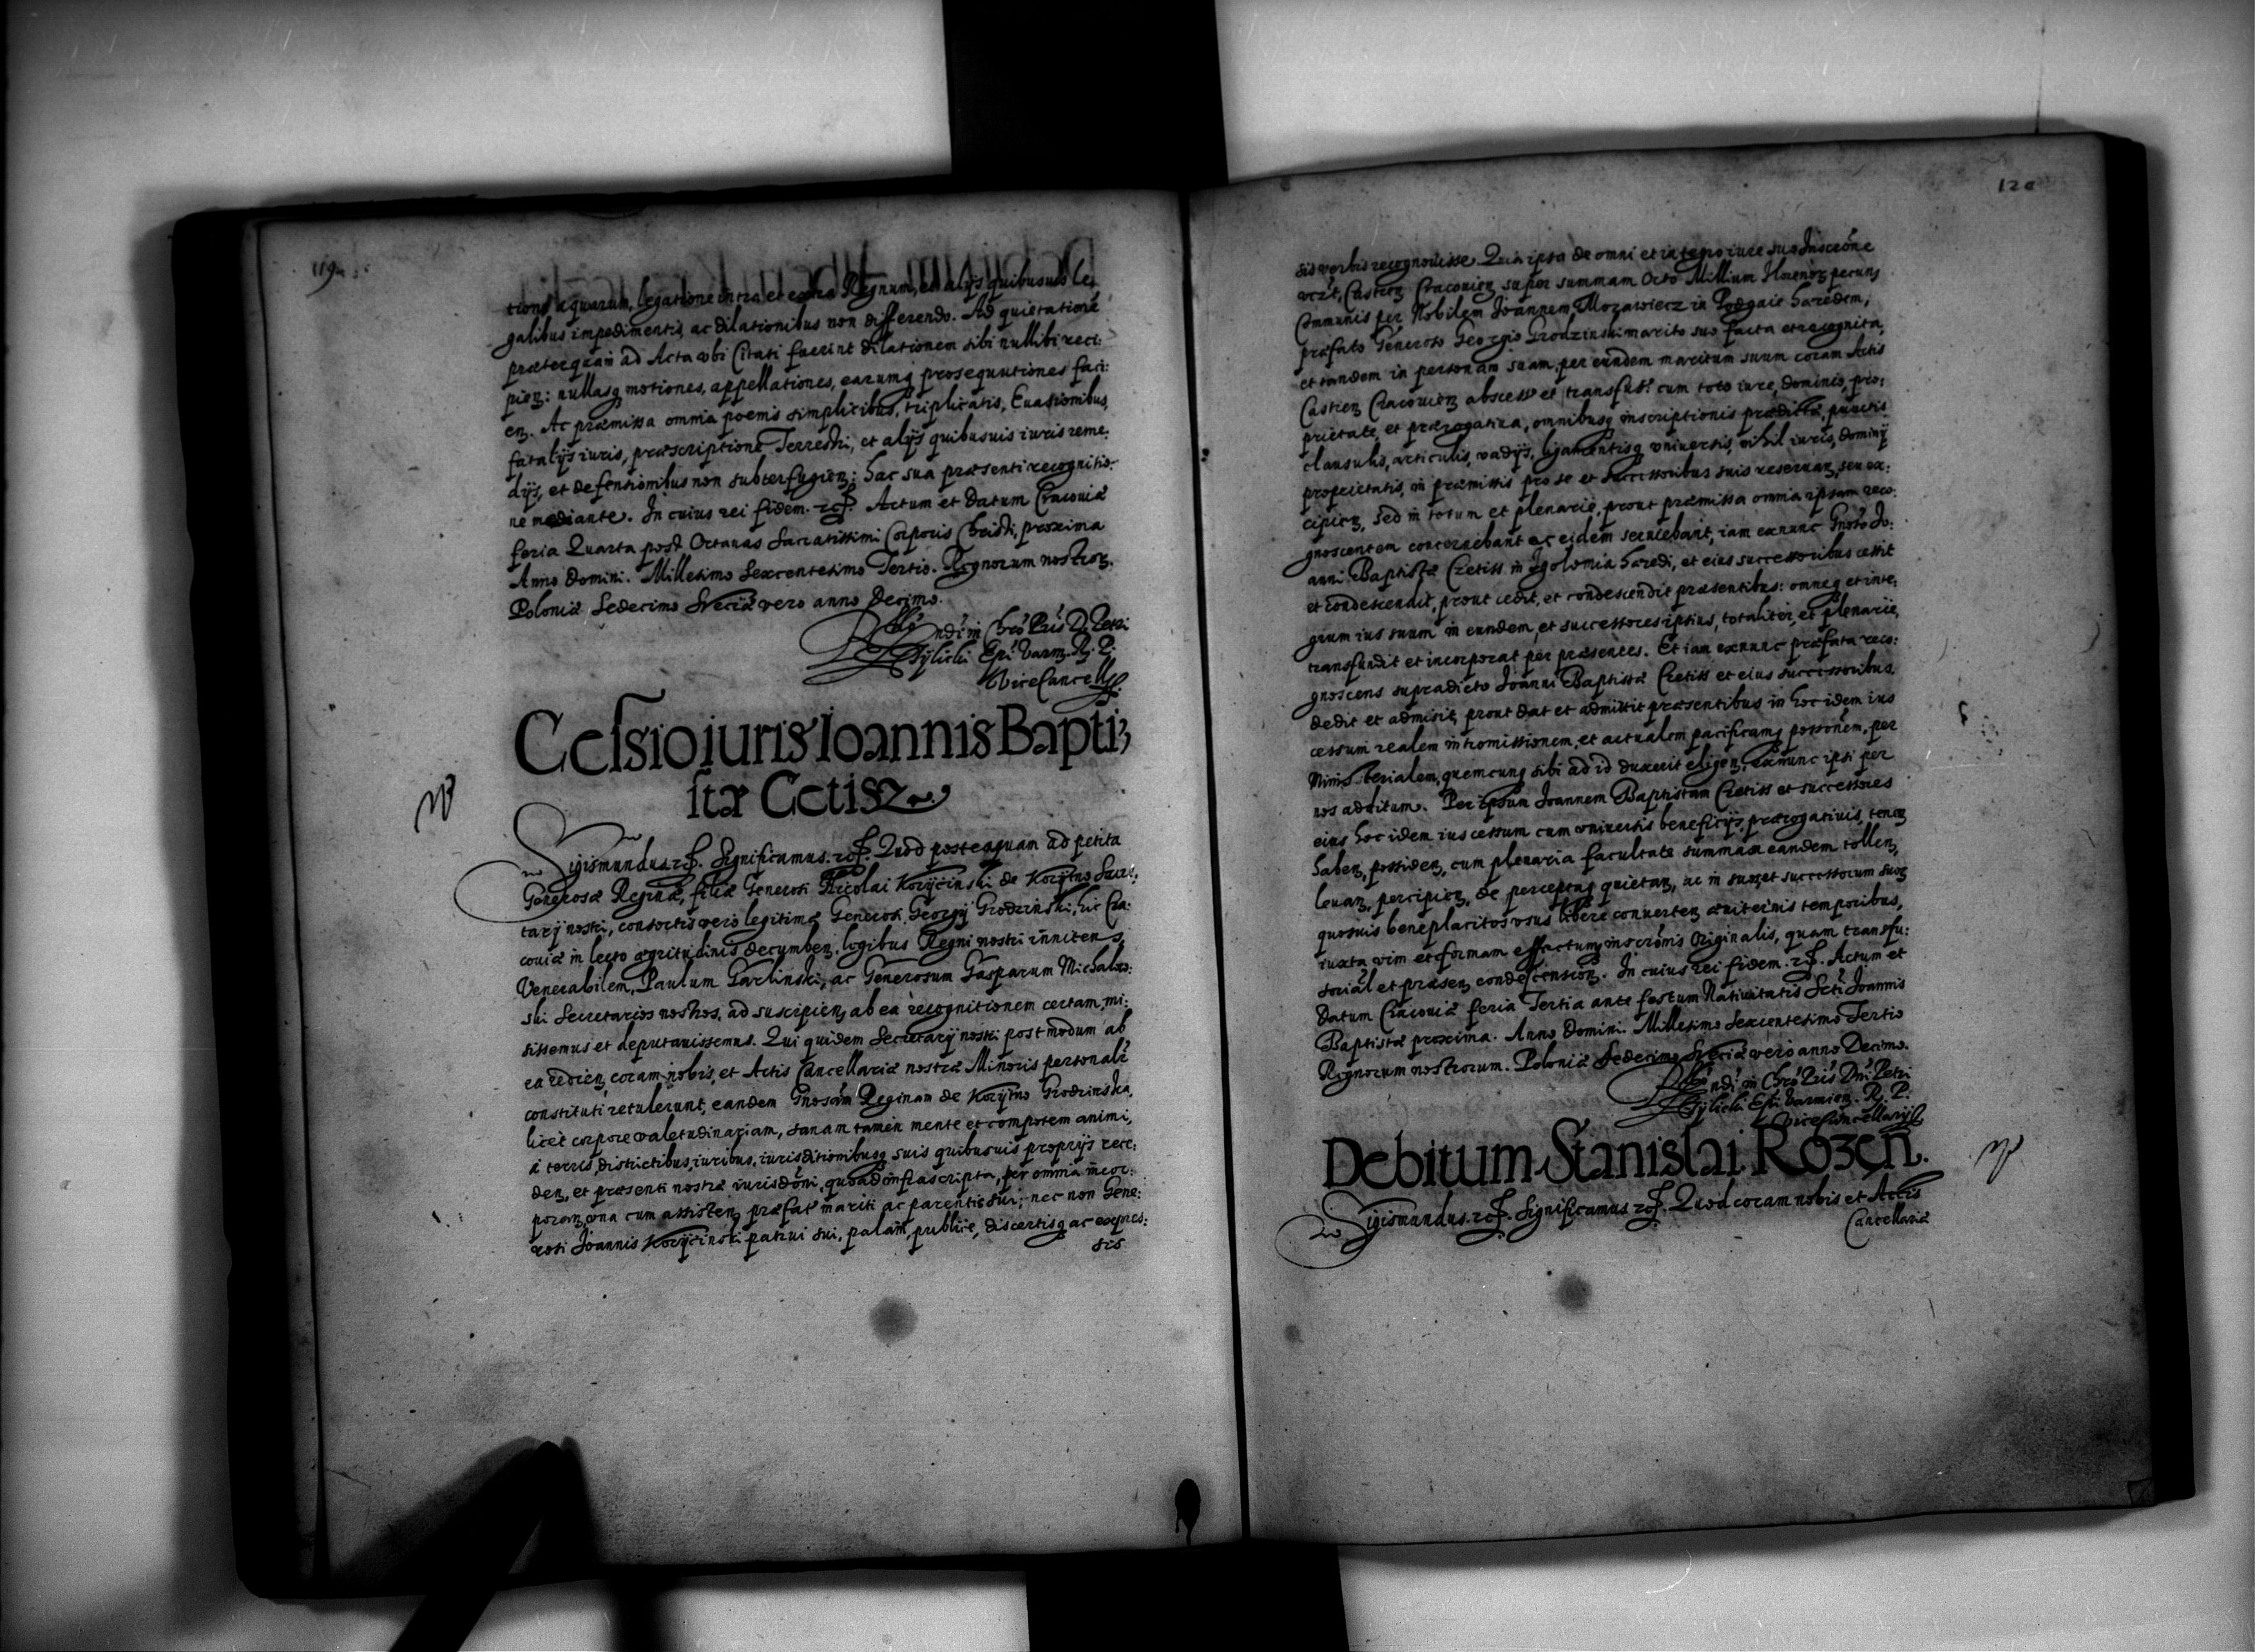 119
tione aquarum, legatione intra et extra Regnum, et alijs quibusuis le
galibus impedimentis, ac dilationibus non differendo. Ad quietatione
præterquam ad Acta vbi Citati fuerint dilationem sibi nullibi reci:
pien: nullasq motiones, appellationes, earumq prosequutiones faci:
en. Ac præmissa omnia poenis simplicibus, triplicatis, Euasionibus,
fatalijs iuris, præscriptione Terrestri, et alijs quibusuis iuris reme:
dijs, et defensionibus non subterfugien: hac sua præsenti recognitio:
ne mediante. In cuius rei fidem. Actum et datum Cracouiæ
feria Quarta post Octauas Sacratissimi Corporis Christi, proxima
Anno Domini. Millesimo Sexcentesimo Tertio. Regnorum nostror.
Poloniæ Sedecimo Sveciæ vero anno Decimo.
Rndi in Chro Pris D. Petri
Tylicki Epi Varm. R. P.
ViceCancell
Cessio iuris Ioannis Bapti,
stæ Cetisz
Sigismundus. Significamus. Quod posteaquam ad petita
Generosæ Reginæ, filiæ Generosi Nicolai Koryciński de Korytno Secre,
tarij nostri, consortis vero legitimæ Generosi Georgij Grodzinski, hic Cra:
couiæ in lecto ægritudinis decumben. legibus Regni nostri inniten s,
Venerabilem, Paulum Garlinski, ac Generosum Gasparum Michalow:
ski Secretarios nostros, ad suscipien ab ea recognitionem certam, mi:
sissemus et deputauissemus. Qui quidem Secretarij nostri postmodum ab
ea redien coram nobis, et Actis Cancellariæ nostræ Minoris personalr
constituti retulerunt, eandem Gnosam Reginam de Korytno Grodzinska,
licet corpore valetudinariam, sanam tamen mente et compotem animi,
á terris, districtibus, iuribus, iurisditionibusq suis quibusuis proprijs rece:
den, et præsenti nostræ iurisdoni, quoad infrascripta, per omnia incor:
poran, vna cum assisten præfat mariti ac parentis sui, nec non Gene:
rosi Joannis Koryciński patrui sui, palam, publice, discertisq ac expres:
sis
120
sis verbis recognouisse. Quia ipsa de omni et integro iure suo Inscrone
Castren Cracouien super summam Octo Millium Florenor pecuny
Communis per Nobilem Joannem Mozawiecz in Podgaie hæredem,
præfato Generoso Georgio Grodzinski marito suo facta et recognita,
et tandem in personam suam, per eundem maritum suum coram Actis
Castren Cracouien abscess et transfus: cum toto iure, dominio, pro:
prietate, et prærogatiua, omnibusq inscriptionis prædictæ, punctis
clausulis, articulis, vadijs, ligamentisq vniuersis, nihil iuris, dominij
proprietatis, in præmissis pro se et successoribus suis reseruan, seu ex:
cipien, sed in totum et plenarie, prout præmissa omnia ipsam reco:
gnoscentem concernebant ac eidem seruiebant, iam exnunc Gnoso Jo:
anni Baptistæ Cretiss in Igolomia hæredi, et eius successoribus cessit
et condescendit, prout cedit, et condescendit præsentibus: omneq et inte:
grum ius suum in eundem, et successores ipsius, totaliter, et plenarie,
transfundit et incorporat per præsentes. Et iam exnunc præfata reco:
gnoscens supradicto Joanni Baptistæ Cretiss et eius successoribus.
dedit et admisit, prout dat et admittit præsentibus in hoc idem ius
cessum realem intromissionem, et actualem pacificamq possonem, per
Ministerialem, quemcunq sibi ad id duxerit eligen, exnunc ipsi per
nos additum. Per ipsum Joannem Baptistam Cretiss et successores
eius hoc idem ius cessum cum vniuersis beneficijs, prærogatiuis, tenen
haben, possiden, cum plenaria facultate summam eandem tollen,
leuan, percipien, de perceptaq quietan, ac in suos et successorum suor
quosuis beneplacitos vsus libere conuerten æuiternis temporibus,
iuxta vim et formam effectum inscronis Originalis, quam transfu:
sorial et præsen condescension. In cuius rei fidem. Actum et
Datum Cracouiæ feria Tertia ante festum Natiuitatis Scti Joannis
Baptistæ proxima. Anno Domini Millesimo Sexcentesimo Tertio
Regnorum nostrorum. Poloniæ Sedecimo Sveciæ vero anno Decimo.
Rndi in Chro Pris Dni Petri
Tylicki Epi Varmien. R. P.
ViceCancellarij
Debitum Stanislai Rozen.
Sigismundus. Significamus Quod coram nobis et Actis
Cancellariæ